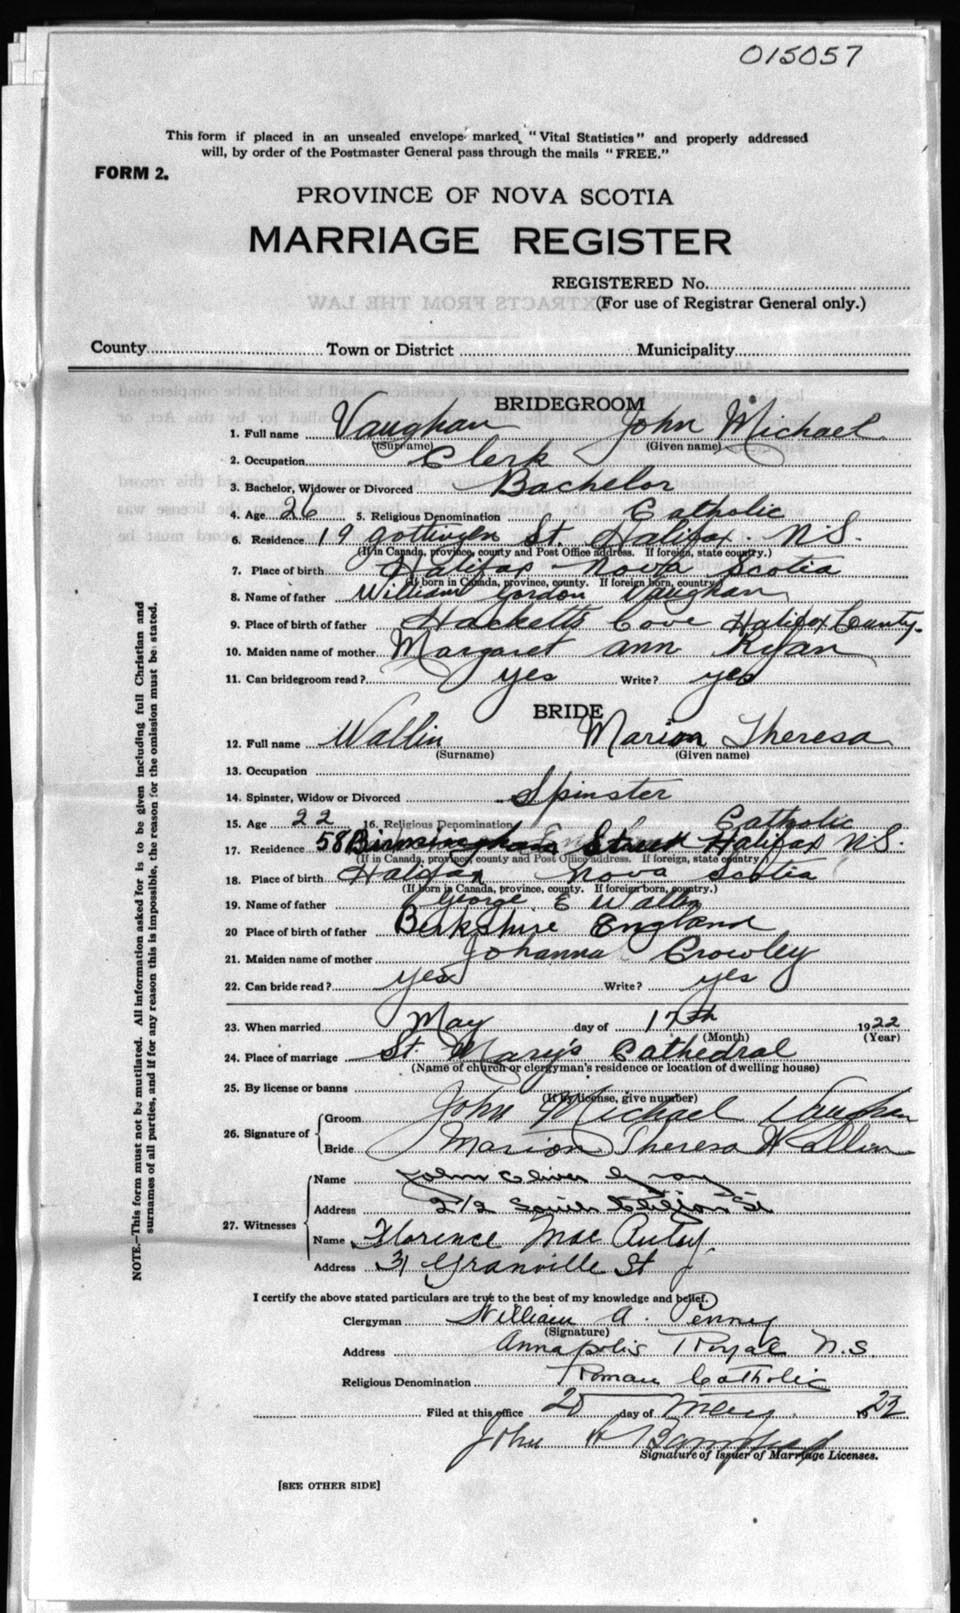 015057
This form if placed in an unsealed envelope marked "Vital Statistics" and properly addressed
will, by order of the Postmaster General pass through the mails "FREE."
FORM 2.
PROVINCE OF NOVA SCOTIA
MARRIAGE REGISTER
REGISTERED No.
(For use of Registrar General only.)
EXTRACTS FROM THE LAW
County Town or District Municipality
BRIDEGROOM
1. Full name Vaughan John Michael
(Surname) (Given name)
2. Occupation Clerk
3. Bachelor, Widower or Divorced Bachelor
4. Age 26 5. Religious Denomination Catholic
6. Residence 19 Gottingen St. Halifax. N.S.
(If in Canada, province, county and Post Office address. If foreign, state country.)
7. Place of birth Halifax Nova Scotia
(If born in Canada, province, county. If foreign born, country.)
8. Name of father William Gordon Vaughan
9. Place of birth of father Hacketts Cove Halifax County.
10. Maiden name of mother Margaret Ann Ryan
11. Can bridegroom read? yes Write? yes
BRIDE
12. Full name Wallin Marion Theresa
(Surname) (Given name)
13. Occupation
14. Spinster, Widow or Divorced Spinster
15. Age 22 16. Religious Denomination Catholic
17. Residence 58 Street Halifax N.S.
(If in Canada, province, county and Post Office address. If foreign, state country)
18. Place of birth Halifax Nova Scotia
(If born in Canada, province, county. If foreign born, country.)
19. Name of father George E Wallin
20 Place of birth of father Berkshire England
21. Maiden name of mother Johanna Crowley
22. Can bride read? yes Write? yes
23. When married May day of 17th 1922
(Month) (Year)
24. Place of marriage St. Mary's Cathedral
(Name of church or clergyman's residence or location of dwelling house)
25. By license or banns
(If by license, give number)
26. Signature of Groom John Michael Vaughan
Bride Marion Theresa Wallin
27. Witnesses
Name John Oliver
Address 212 South St
Name Florence Mae
Address 31 Granville St
I certify the above stated particulars are true to the best of my knowledge and belief.
Clergyman William A. Penney
(Signature)
Address Annapolis Royal N.S.
Religious Denomination Roman Catholic
Filed at this office 20 day of May 1922
John
Signature of Issuer of Marriage Licenses.
[SEE OTHER SIDE]
NOTE.—This form must not be mutilated. All information asked for is to be given including full Christian and
surnames of all parties, and if for any reason this is impossible, the reason for the omission must be stated.